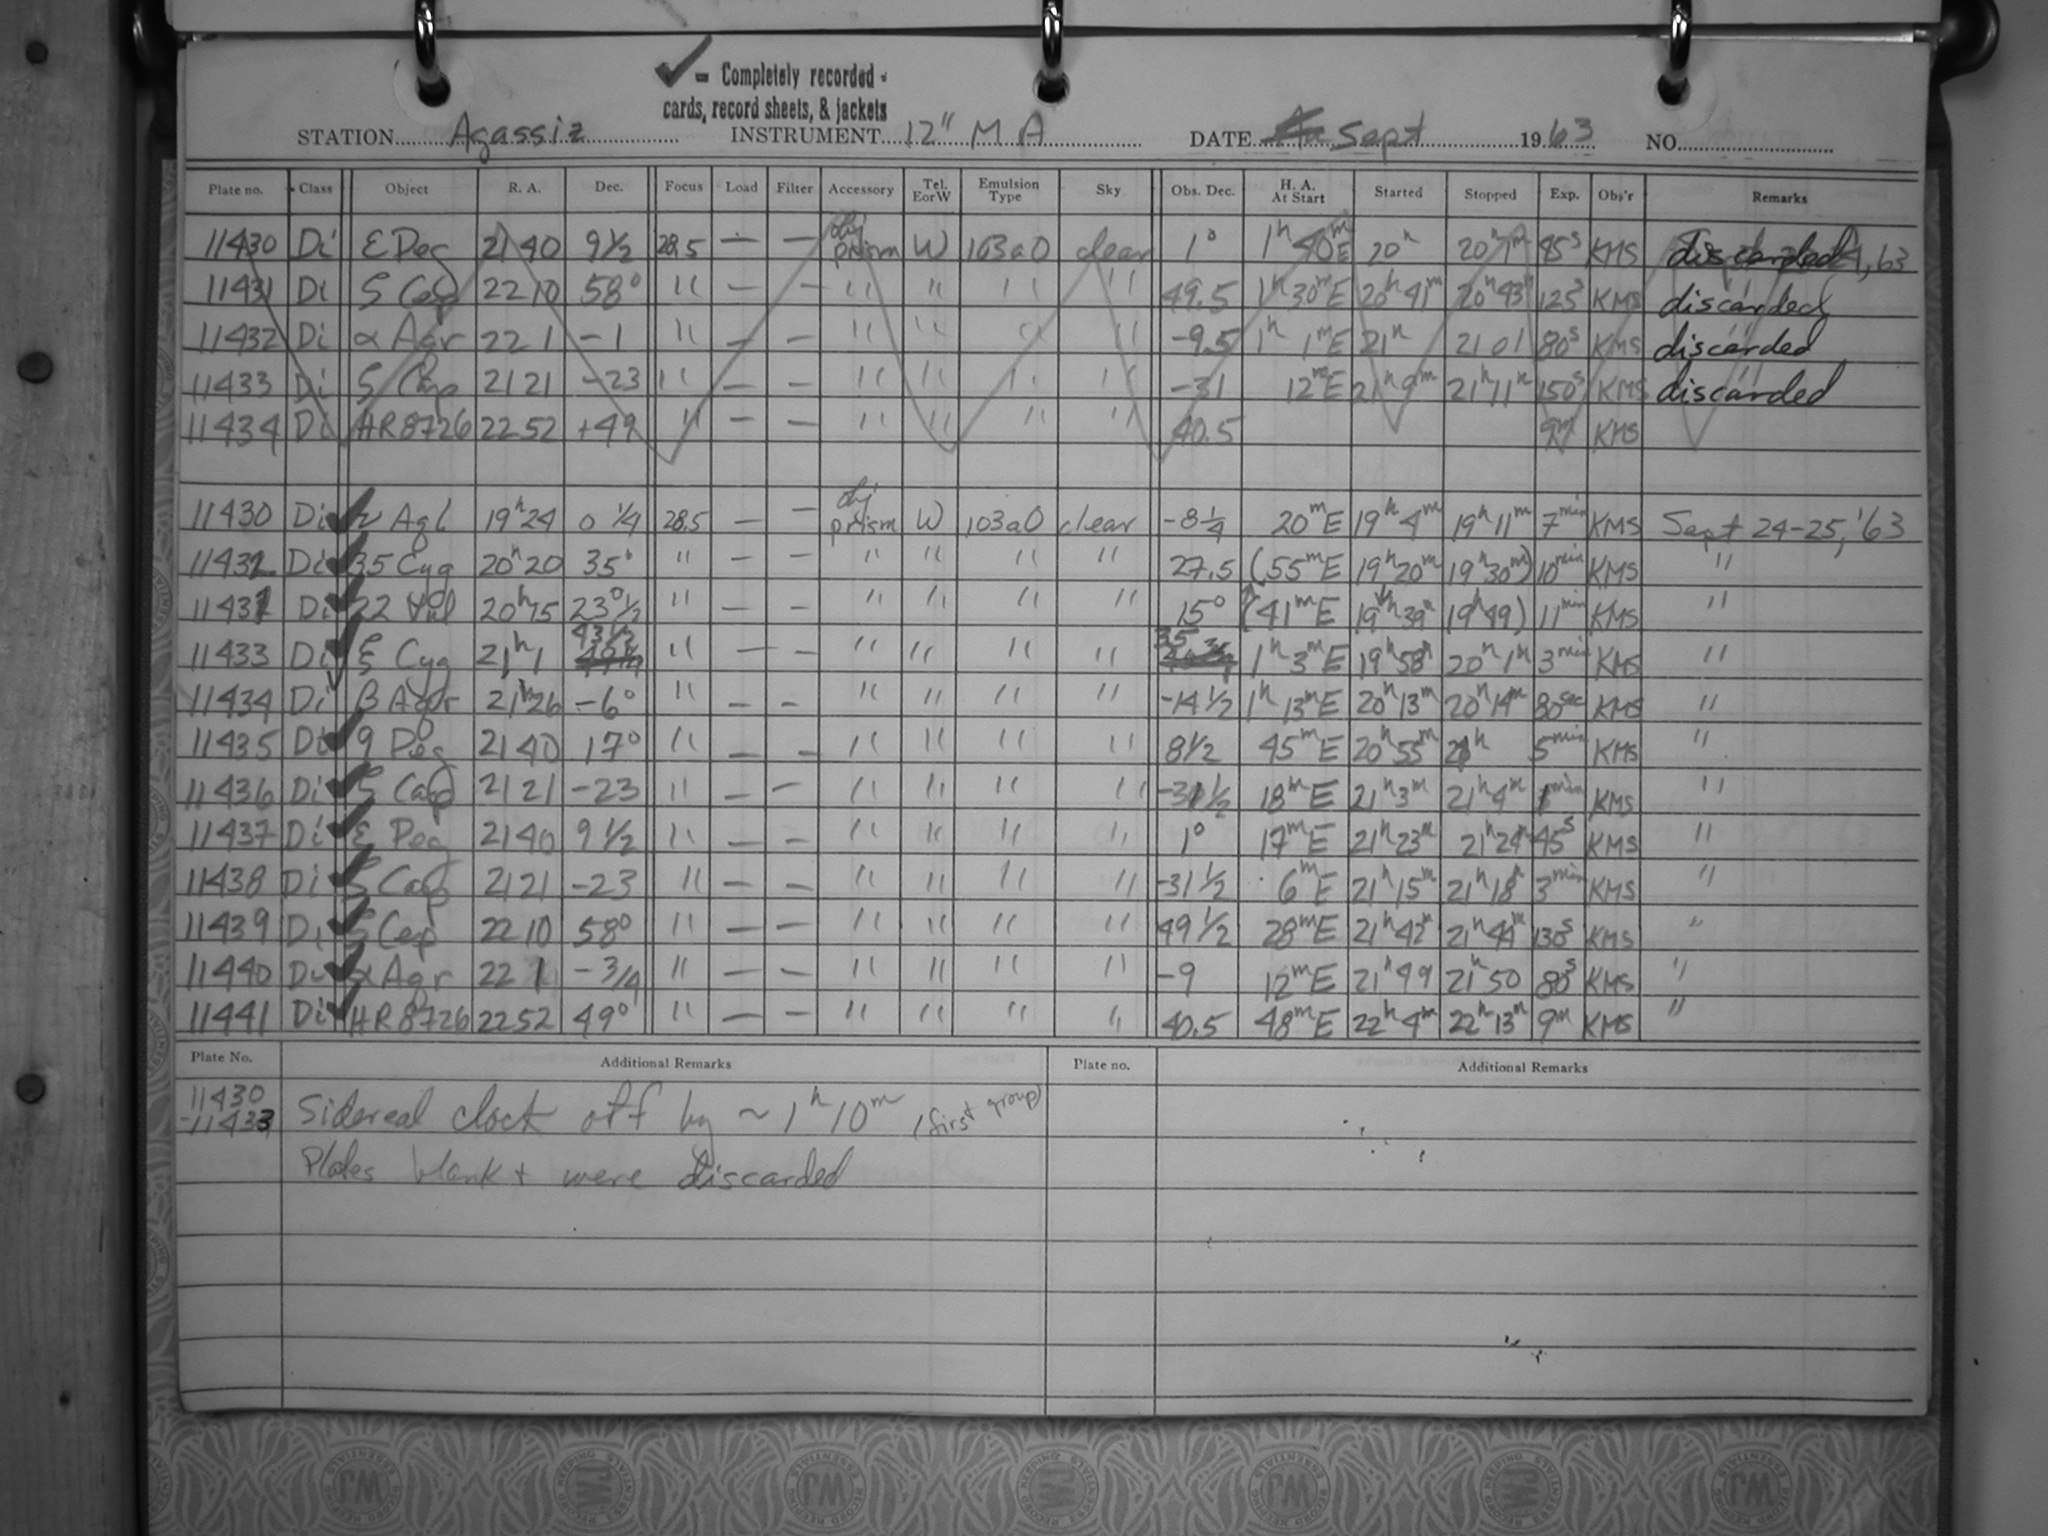 ✓ = Completely recorded -
cards, record sheets, & jackets
STATION Agassiz INSTRUMENT 12" M A DATE Sept 1963 NO.
Plate no. Class Object R. A. Dec. Focus Load Filter Accessory Tel. EorW Emulsion Type Sky Obs. Dec. H. A. At Start Started Stopped Exp. Obs'r Remarks
11430 Di ε Peg 21 40 9 1/2 28.5 — — obj prism W 103aO clear 1° 1h 40m E 20h 20h 1m 45s KMS discarded
11431 Di ζ Cep 22 10 58° " — — " " " " 49.5 1h 30m E 20h 41m 20h 43m 125s KMS discarded
11432 Di α Aqr 22 1 -1 " — — " " " " -9.5 1h 1m E 21h 21 01 80s KMS discarded
11433 Di ζ Cap 21 21 -23 " — — " " " " -31 12m E 21h 9m 21h 11m 150s KMS discarded
11434 Di HR 8726 22 52 +49 " — — " " " " 40.5 9m KMS
11430 Di ✓ Aql 19h 24 0 1/4 28.5 — — obj prism W 103aO clear -8 1/4 20m E 19h 4m 19h 11m 7min KMS Sept 24-25, '63
11432 Di ✓ 35 Cyg 20h 20 35° " — — " " " " 27.5 (55m E 19h 20m 19h 30m) 10min KMS "
11431 Di ✓ 22 Vul 20h 15 23° 1/2 " — — " " " " 15° (41m E 19h 39m 19h 49) 11min KMS "
11433 Di ✓ ξ Cyg 21h 1 43 1/2 " — — " " " " 35 1h 3m E 19h 58m 20h 1m 3min KMS "
11434 Di β Aqr 21h 26 -6° " — — " " " " -14 1/2 1h 13m E 20h 13m 20h 14m 80sec KMS "
11435 Di ✓ 9 Peg 21 40 17° " — — " " " " 8 1/2 45m E 20h 55m 21h 5min KMS "
11436 Di ✓ ζ Cap 21 21 -23 " — — " " " " -31 1/2 18m E 21h 3m 21h 4m 1min KMS "
11437 Di ✓ ε Peg 21 40 9 1/2 " — — " " " " 1° 17m E 21h 23m 21h 24m 45s KMS "
11438 Di ✓ ζ Cap 21 21 -23 " — — " " " " -31 1/2 6m E 21h 15m 21h 18m 3min KMS "
11439 Di ✓ ζ Cep 22 10 58° " — — " " " " 49 1/2 28m E 21h 42m 21h 44m 130s KMS "
11440 Di ✓ α Aqr 22 1 -3/4 " — — " " " " -9 12m E 21h 49 21h 50 80s KMS "
11441 Di ✓ HR 8726 22 52 49° " — — " " " " 40.5 48m E 22h 4m 22h 13m 9m KMS "
Plate No. Additional Remarks Plate no. Additional Remarks
11430
-11433 Sidereal clock off by ~ 1h 10m (first group)
Plates blank + were discarded